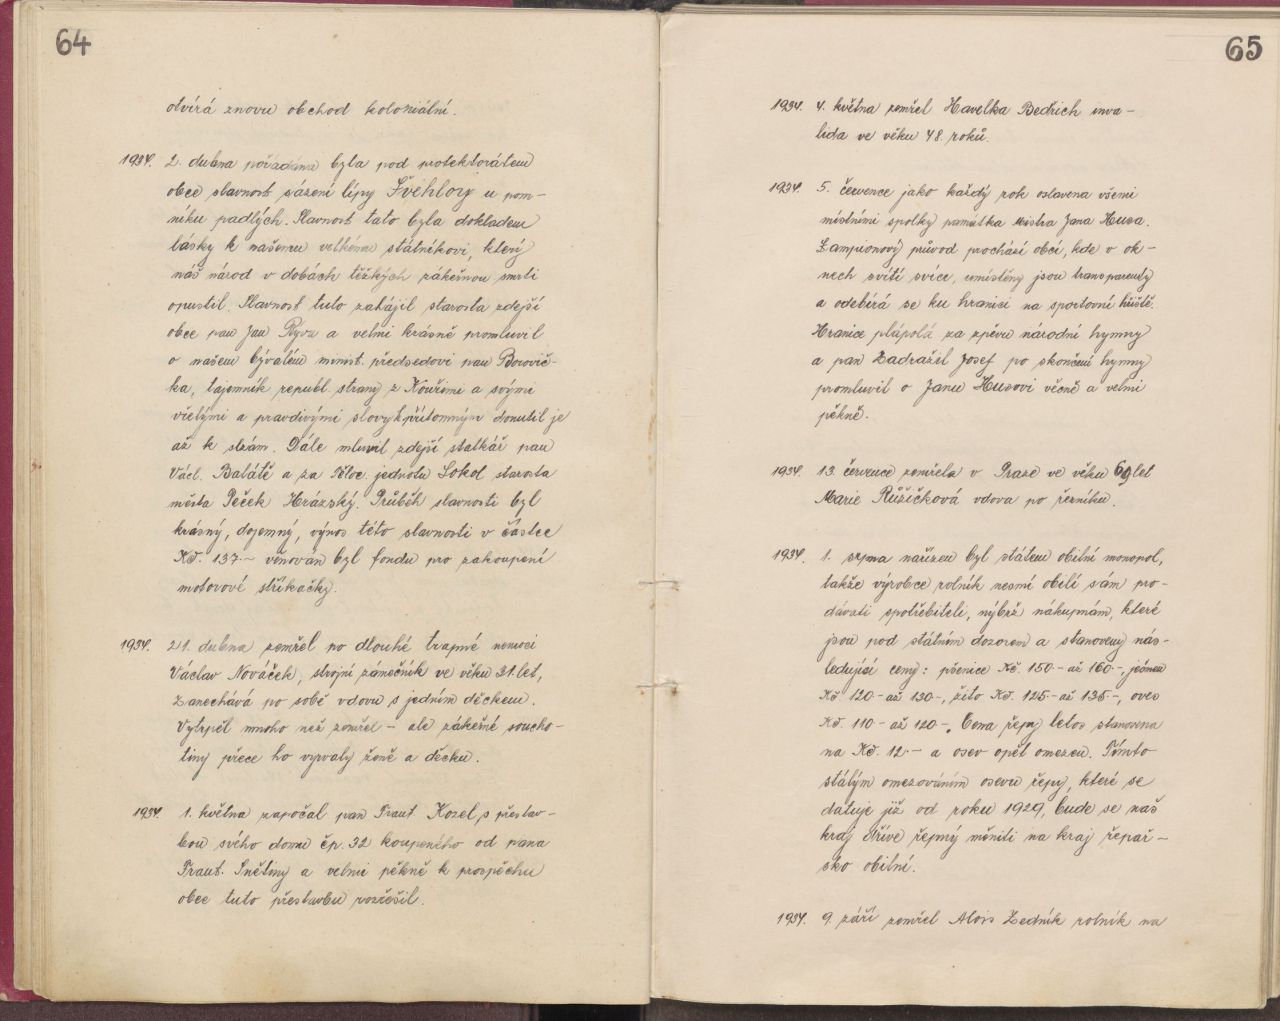 64
otvírá znovu obchod koloniální.
1934. 2. dubna pořádána byla pod protektorátem
obce slavnost sázení lípy Švehlovy u pom-
níku padlých. Slavnost tato byla dokladem
lásky k našemu velkému státníkovi, který
náš národ v dobách těžkých zákeřnou smrtí
opustil. Slavnost tuto zahájil starosta zdejší
obce pan Jan Rýva a velmi krásně promluvil
o našem bývalém minist. předsedovi pan Borovič-
ka, tajemník republ. strany z Kouřimi a svými
vřelými a pravdivými slovy k přítomným donutil je
až k slzám. Dále mluvil zdejší statkář pan
Václ. Balátě a za Těloc. jednotu Sokol starosta
města Peček Hrázský. Průběh slavnosti byl
krásný, dojemný, výnos této slavnosti v částce
Kč. 137.- věnován byl fondu pro zakoupení
motorové stříkačky.
1934. 21. dubna zemřel po dlouhé trapné nemoci
Václav Nováček, strojní zámečník ve věku 31 let,
Zanechává po sobě vdovu s jedním děckem.
Vytrpěl mnoho než zemřel - ale zákeřné soucho-
tiny přece ho vyrvaly ženě a děcku.
1934. 1. května započal pan Frant. Kozel s přestav-
bou svého domu čp. 32 koupeného od pana
Frant. Snětiny a velmi pěkně k prospěchu
obce tuto přestavbu rozřešil.
65
1934. 4. května zemřel Havelka Bedřich inva-
lida ve věku 48 roků.
1934. 5. července jako každý rok oslavena všemi
místními spolky památka Mistra Jana Husa.
Lampionový průvod prochází obcí, kde v ok-
nech svítí svíce, umístěny jsou transparenty
a odebírá se ku hranici na sportovní hřiště.
Hranice plápolá za zpěvu národní hymny
a pan Zadražil Josef po skončení hymny
promluvil o Janu Husovi věcně a velmi
pěkně.
1934. 13. července zemřela v Praze ve věku 69 let
Marie Růžičková vdova po řezníku.
1934. 1. srpna nařízen byl státem obilní monopol,
takže výrobce rolník nesmí obilí sám pro-
dávati spotřebiteli, nýbrž nákupnám, které
jsou pod státním dozorem a stanoveny nás-
ledující ceny: pšenice Kč. 150.- až 160.-, ječmen
Kč 120.- až 130.-, žito Kč. 125.- až 135.-, oves
Kč. 110.- až 120.-. Cena řepy letos stanovena
na Kč. 12.- a osev opět omezen. Tímto
stálým omezováním osevu řepy, které se
datuje již od roku 1929, bude se náš
kraj dříve řepný měniti na kraj řepař-
sko obilní.
1934. 9. září zemřel Alois Zedník rolník na